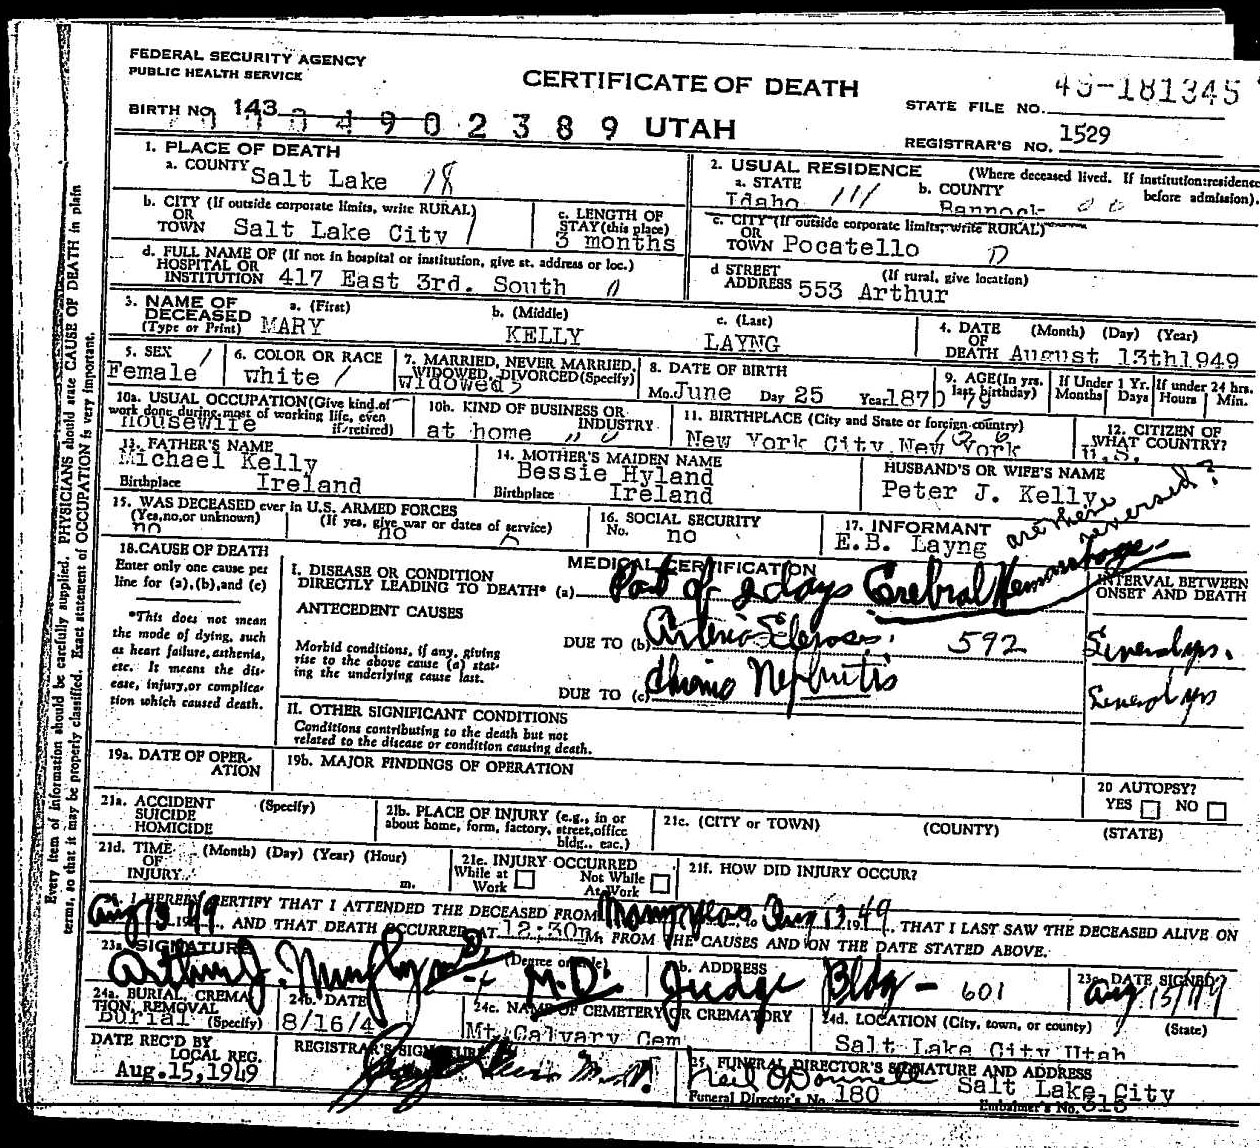 FEDERAL SECURITY AGENCY
PUBLIC HEALTH SERVICE
CERTIFICATE OF DEATH
STATE FILE NO. 49-181345
BIRTH NO. 143
4902389 UTAH
REGISTRAR'S NO. 1529
1. PLACE OF DEATH
a. COUNTY Salt Lake 18
2. USUAL RESIDENCE (Where deceased lived. If institution:residence before admission).
a. STATE Idaho
b. COUNTY Bannock
b. CITY (If outside corporate limits, write RURAL)
OR
TOWN Salt Lake City
c. LENGTH OF
STAY (this place)
3 months
c. CITY (If outside corporate limits, write RURAL)
OR
TOWN Pocatello
d. FULL NAME OF (If not in hospital or institution, give st. address or loc.)
HOSPITAL OR
INSTITUTION 417 East 3rd. South
d STREET (If rural, give location)
ADDRESS 553 Arthur
3. NAME OF DECEASED
(Type or Print)
a. (First)
MARY
b. (Middle)
KELLY
c. (Last)
LAYNG
4. DATE (Month) (Day) (Year)
OF
DEATH August 13th1949
5. SEX
Female
6. COLOR OR RACE
White
7. MARRIED, NEVER MARRIED,
WIDOWED, DIVORCED (Specify)
widowed
8. DATE OF BIRTH
Mo. June Day 25 Year 1870
9. AGE (In yrs. last birthday) 79
If Under 1 Yr.
Months Days
If under 24 hrs.
Hours Min.
10a. USUAL OCCUPATION (Give kind of
work done during most of working life, even
if retired)
housewife
10b. KIND OF BUSINESS OR
INDUSTRY
at home
11. BIRTHPLACE (City and State or foreign country)
New York City, New York
12. CITIZEN OF
WHAT COUNTRY?
U.S.
13. FATHER'S NAME
Michael Kelly
Birthplace Ireland
14. MOTHER'S MAIDEN NAME
Bessie Hyland
Birthplace Ireland
HUSBAND'S OR WIFE'S NAME
Peter J. Kelly
are these reversed?
15. WAS DECEASED ever in U.S. ARMED FORCES
(Yes,no,or unknown)
no
(If yes, give war or dates of service)
no
16. SOCIAL SECURITY
No. no
17. INFORMANT
E.B. Layng
18. CAUSE OF DEATH
Enter only one cause per
line for (a), (b), and (c)
*This does not mean
the mode of dying, such
as heart failure, asthenia,
etc. It means the dis-
ease, injury, or complica-
tion which caused death.
MEDICAL CERTIFICATION
I. DISEASE OR CONDITION
DIRECTLY LEADING TO DEATH* (a) Past of 2 days Cerebral Hemorrhage
INTERVAL BETWEEN
ONSET AND DEATH
ANTECEDENT CAUSES
Morbid conditions, if any, giving
rise to the above cause (a) stat-
ing the underlying cause last.
DUE TO (b) Arterio Sclerosis. 592 Several yrs.
DUE TO (c) Chronic Nephritis Several yrs
II. OTHER SIGNIFICANT CONDITIONS
Conditions contributing to the death but not
related to the disease or condition causing death.
19a. DATE OF OPER-
ATION
19b. MAJOR FINDINGS OF OPERATION
20 AUTOPSY?
YES NO
21a. ACCIDENT (Specify)
SUICIDE
HOMICIDE
21b. PLACE OF INJURY (e.g., in or
about home, form, factory, street, office
bldg., eac.)
21c. (CITY or TOWN) (COUNTY) (STATE)
21d. TIME (Month) (Day) (Year) (Hour)
OF
INJURY m.
21e. INJURY OCCURRED
While at Work
Not While At Work
21f. HOW DID INJURY OCCUR?
I HEREBY CERTIFY THAT I ATTENDED THE DECEASED FROM Many years to Aug 13, 1949, THAT I LAST SAW THE DECEASED ALIVE ON
Aug 13 1949, AND THAT DEATH OCCURRED AT 12:30 m, FROM THE CAUSES AND ON THE DATE STATED ABOVE.
23a. SIGNATURE (Degree or title)
Arthur J. Murphy M.D.
23b. ADDRESS
Judge Bldg - 601
23c. DATE SIGNED
Aug 15/49
24a. BURIAL, CREMA-
TION, REMOVAL
(Specify)
Burial
24b. DATE
8/16/4
24c. NAME OF CEMETERY OR CREMATORY
Mt Calvary Cem
24d. LOCATION (City, town, or county) (State)
Salt Lake City Utah
DATE REC'D BY
LOCAL REG.
Aug.15,1949
REGISTRAR'S SIGNATURE
M.D.
25. FUNERAL DIRECTOR'S SIGNATURE AND ADDRESS
Neil O'Donnell Salt Lake City
Funeral Director's No. 180
Embalmer's No. 313
Every item of information should be carefully supplied. PHYSICIANS should state CAUSE OF DEATH in plain
terms, so that it may be properly classified. Exact statement of OCCUPATION is very important.